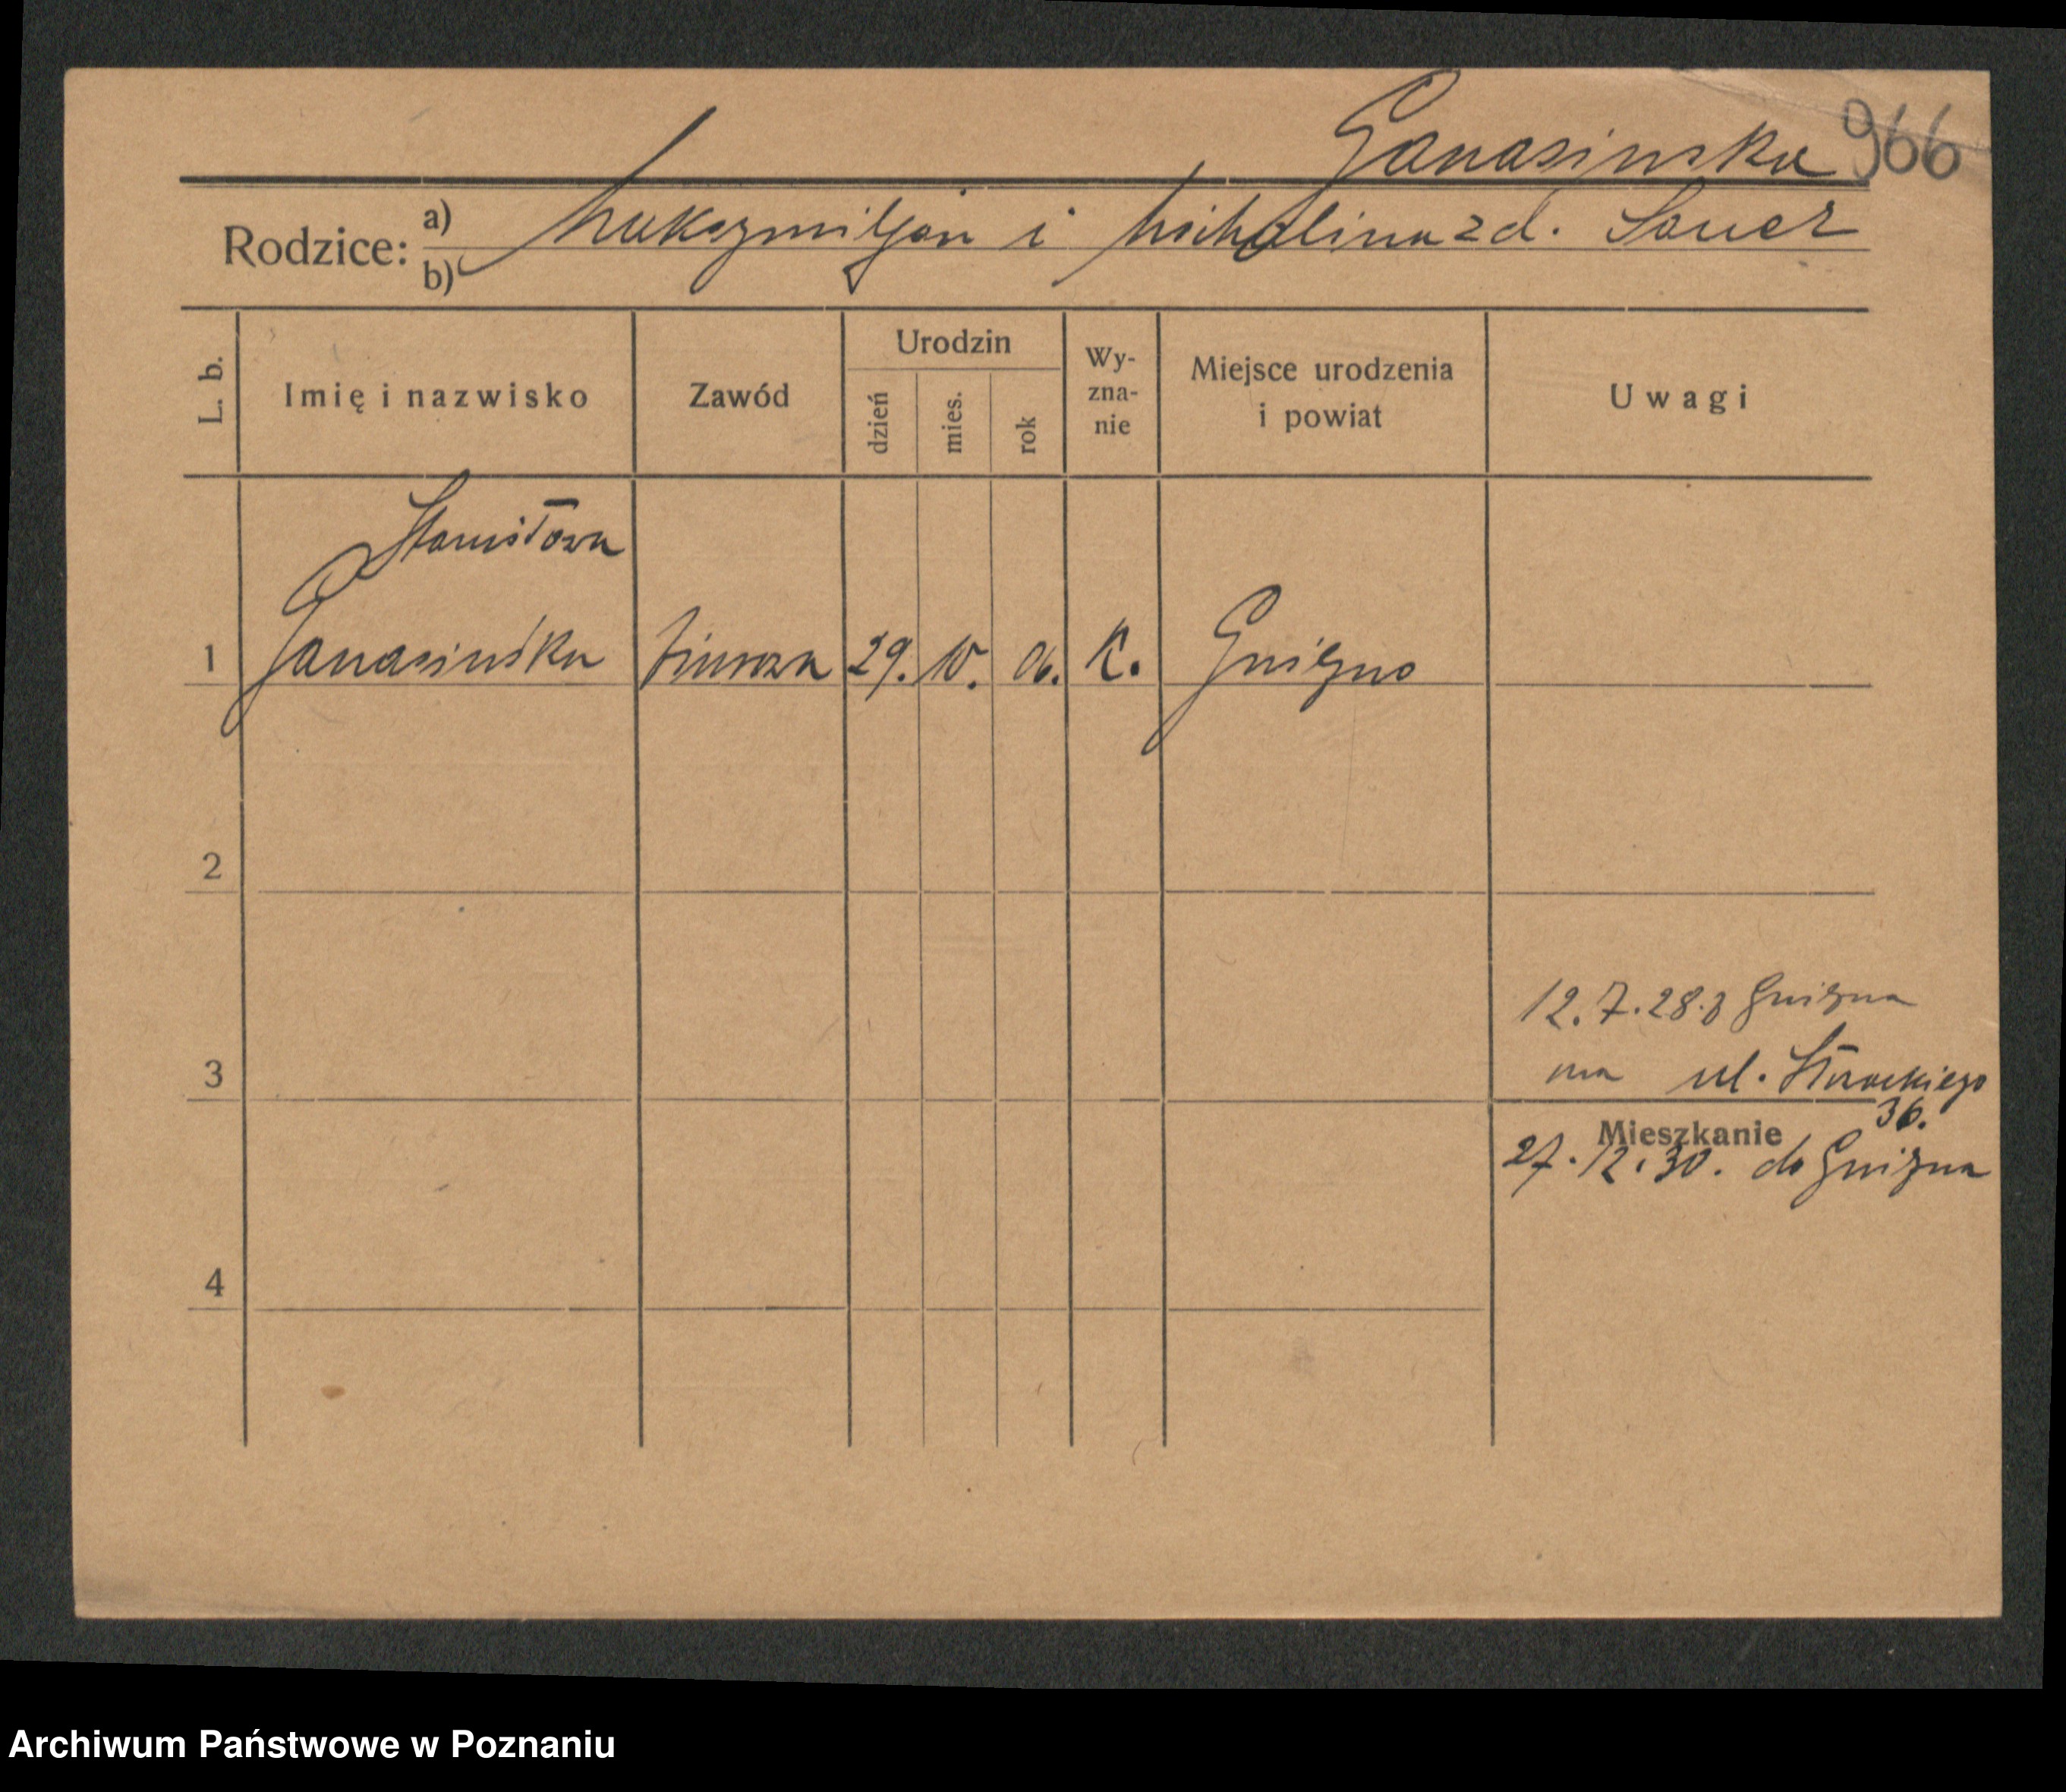 Ganasinska 966
Rodzice: a) Maksymiljan i Michalina z d. Sauer
b)
L. b. Imię i nazwisko Zawód Urodzin dzień mies. rok Wy-zna-nie Miejsce urodzenia i powiat Uwagi
Stanisława
1 Ganasinska biurowa 29. 10. 06. K. Gniezno
2
12.7.28. z Gniezna
3 na ul. Słowackiego
36.
Mieszkanie
27.12.30. do Gniezna
4
Archiwum Państwowe w Poznaniu